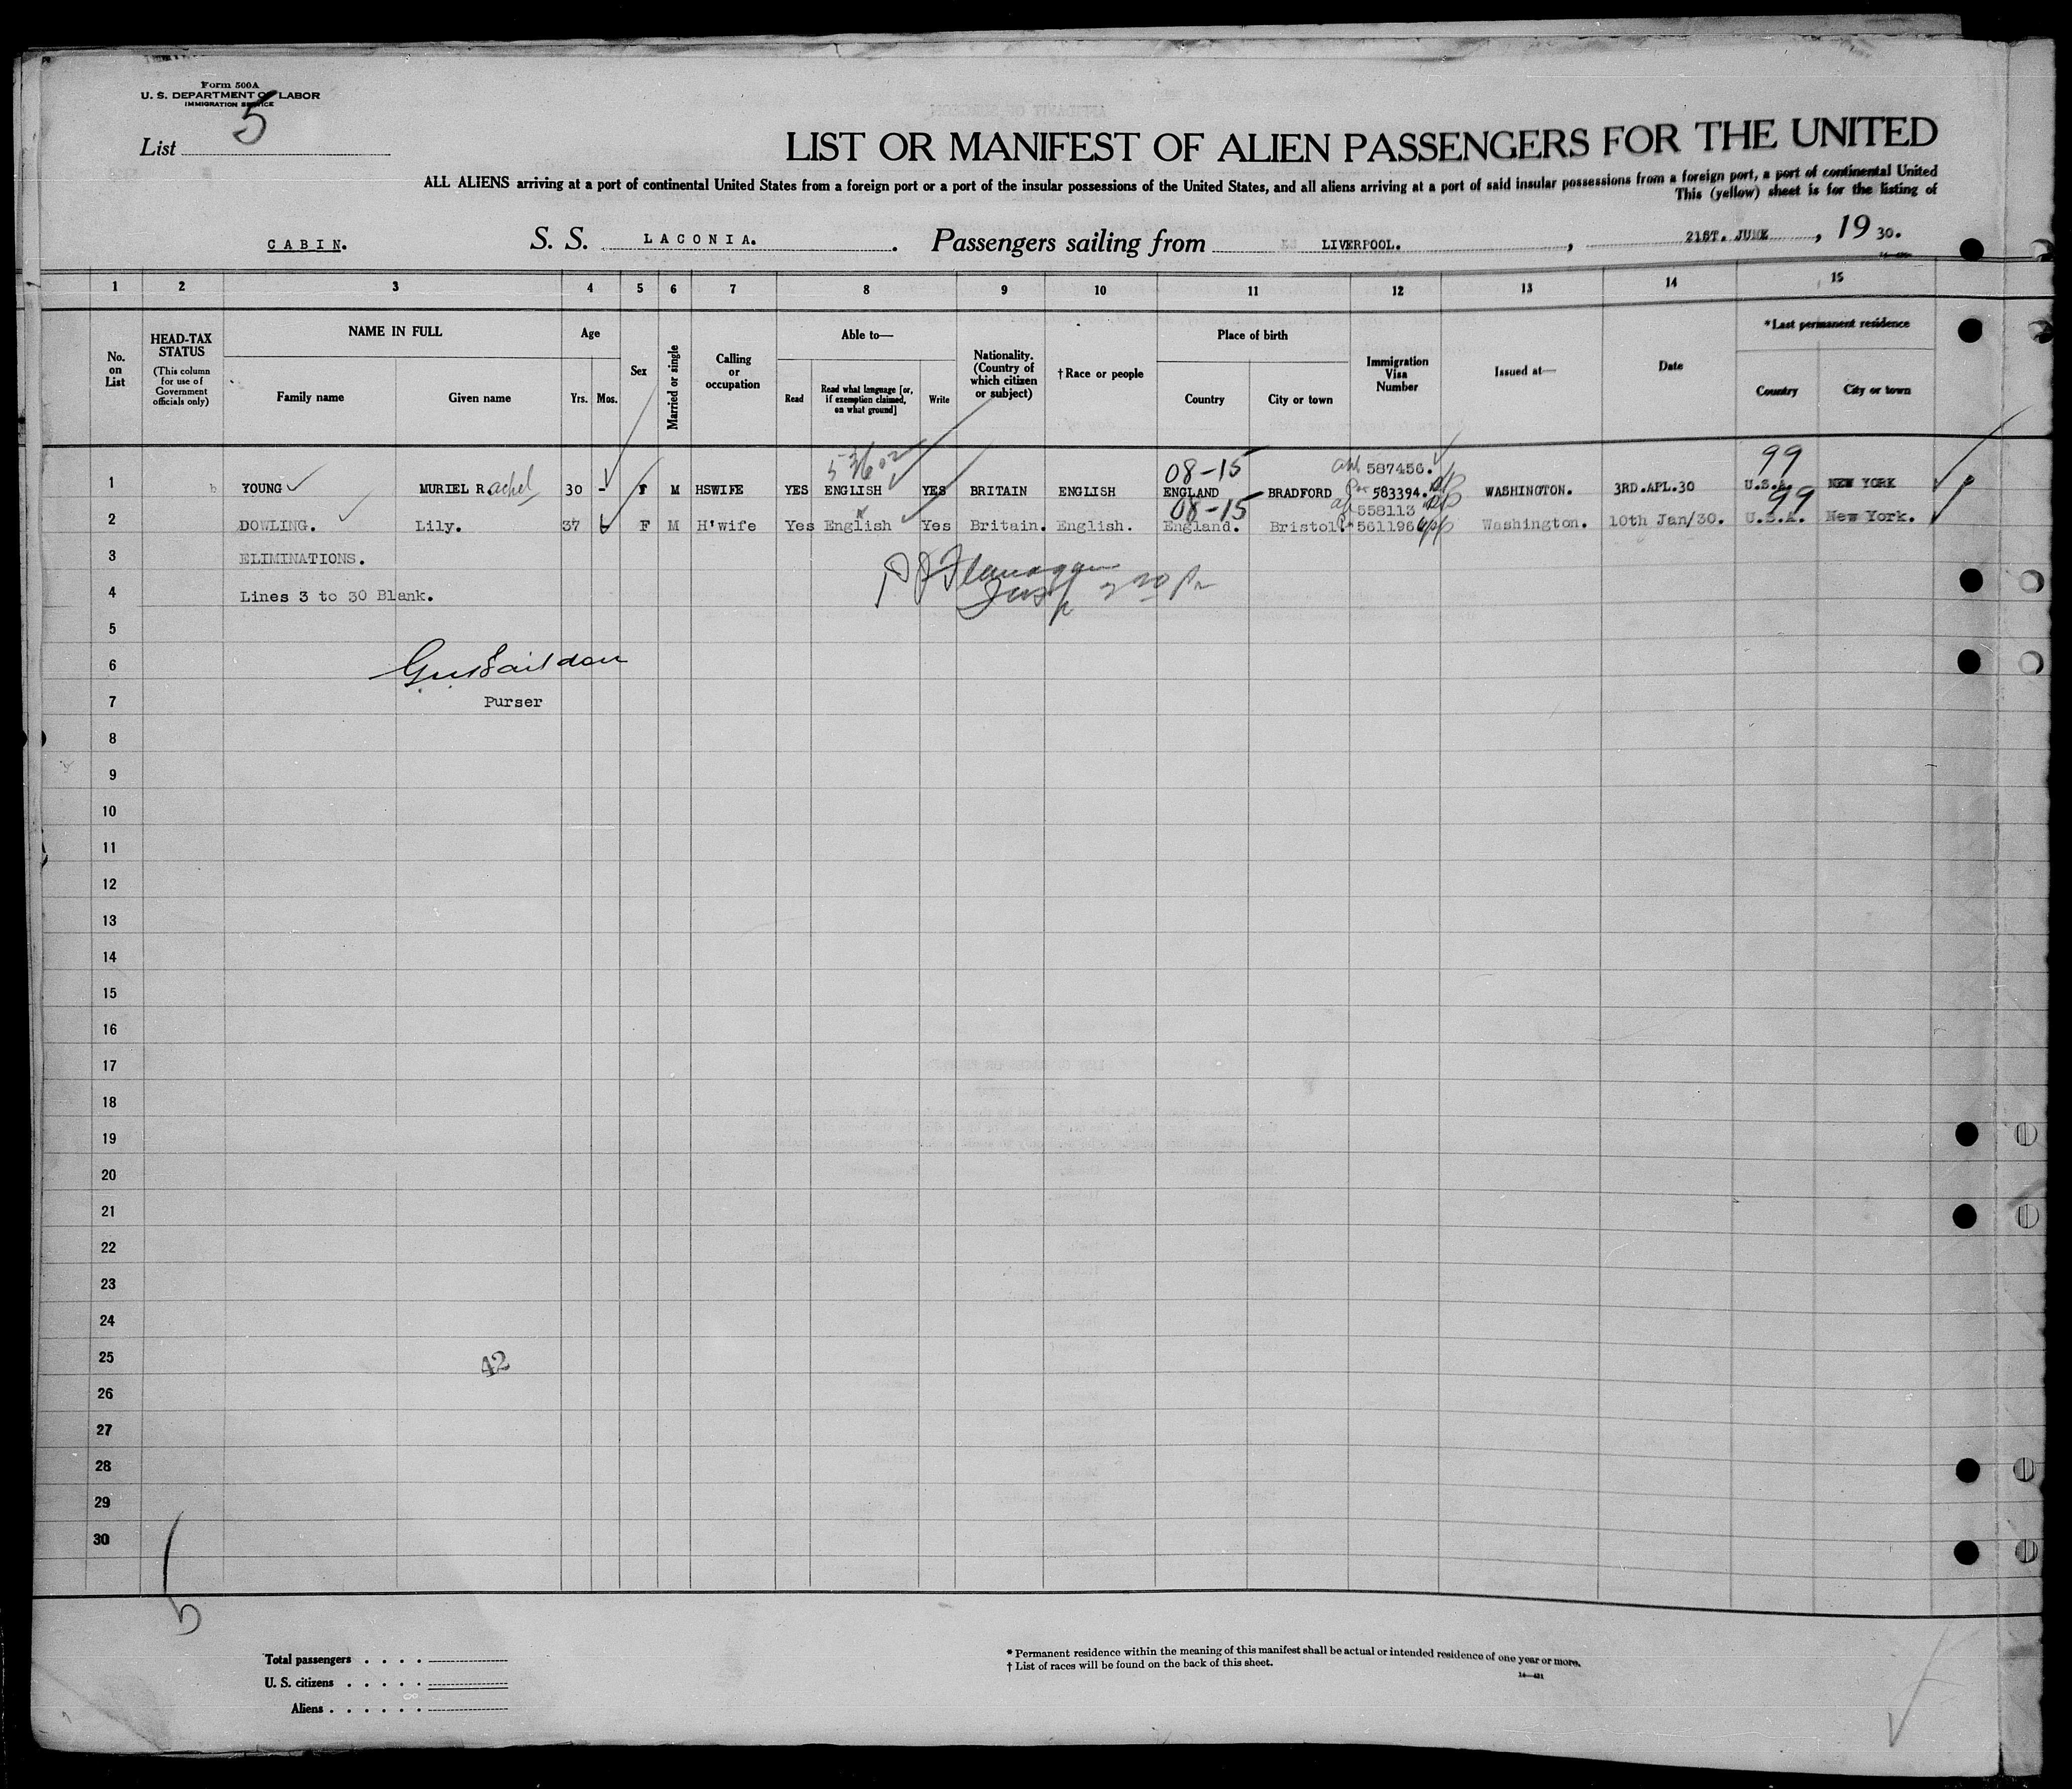 Form 500A
U. S. DEPARTMENT OF LABOR
IMMIGRATION SERVICE
List 5
LIST OR MANIFEST OF ALIEN PASSENGERS FOR THE UNITED
ALL ALIENS arriving at a port of continental United States from a foreign port or a port of the insular possessions of the United States, and all aliens arriving at a port of said insular possessions from a foreign port, a port of continental United
This (yellow) sheet is for the listing of
CABIN. S. S. LACONIA. Passengers sailing from LIVERPOOL. , 21ST. JUNE , 19 30.
1 2 3 4 5 6 7 8 9 10 11 12 13 14 15
No. on List
HEAD-TAX STATUS
(This column for use of Government officials only)
NAME IN FULL
Family name Given name
Age
Yrs. Mos.
Sex
Married or single
Calling or occupation
Able to—
Read
Read what language [or, if exemption claimed, on what ground]
Write
Nationality. (Country of which citizen or subject)
†Race or people
Place of birth
Country City or town
Immigration Visa Number
Issued at—
Date
*Last permanent residence
Country City or town
53602 08-15 587456. 99
1 YOUNG MURIEL Rachel 30 - F M HSWIFE YES ENGLISH YES BRITAIN ENGLISH ENGLAND BRADFORD 583394. WASHINGTON. 3RD.APL.30 U.S.A. NEW YORK
08-15 558113 99
2 DOWLING. Lily. 37 F M H'wife Yes English Yes Britain. English. England. Bristol. 561196 Washington. 10th Jan/30. U.S.A. New York.
3 ELIMINATIONS.
4 Lines 3 to 30 Blank.
P J Flanagan
Insp
5
6
7 Purser
8
9
10
11
12
13
14
15
16
17
18
19
20
21
22
23
24
25 42
26
27
28
29
30
b
Total passengers . . . .
U. S. citizens . . . . .
Aliens . . . . . .
* Permanent residence within the meaning of this manifest shall be actual or intended residence of one year or more.
† List of races will be found on the back of this sheet.